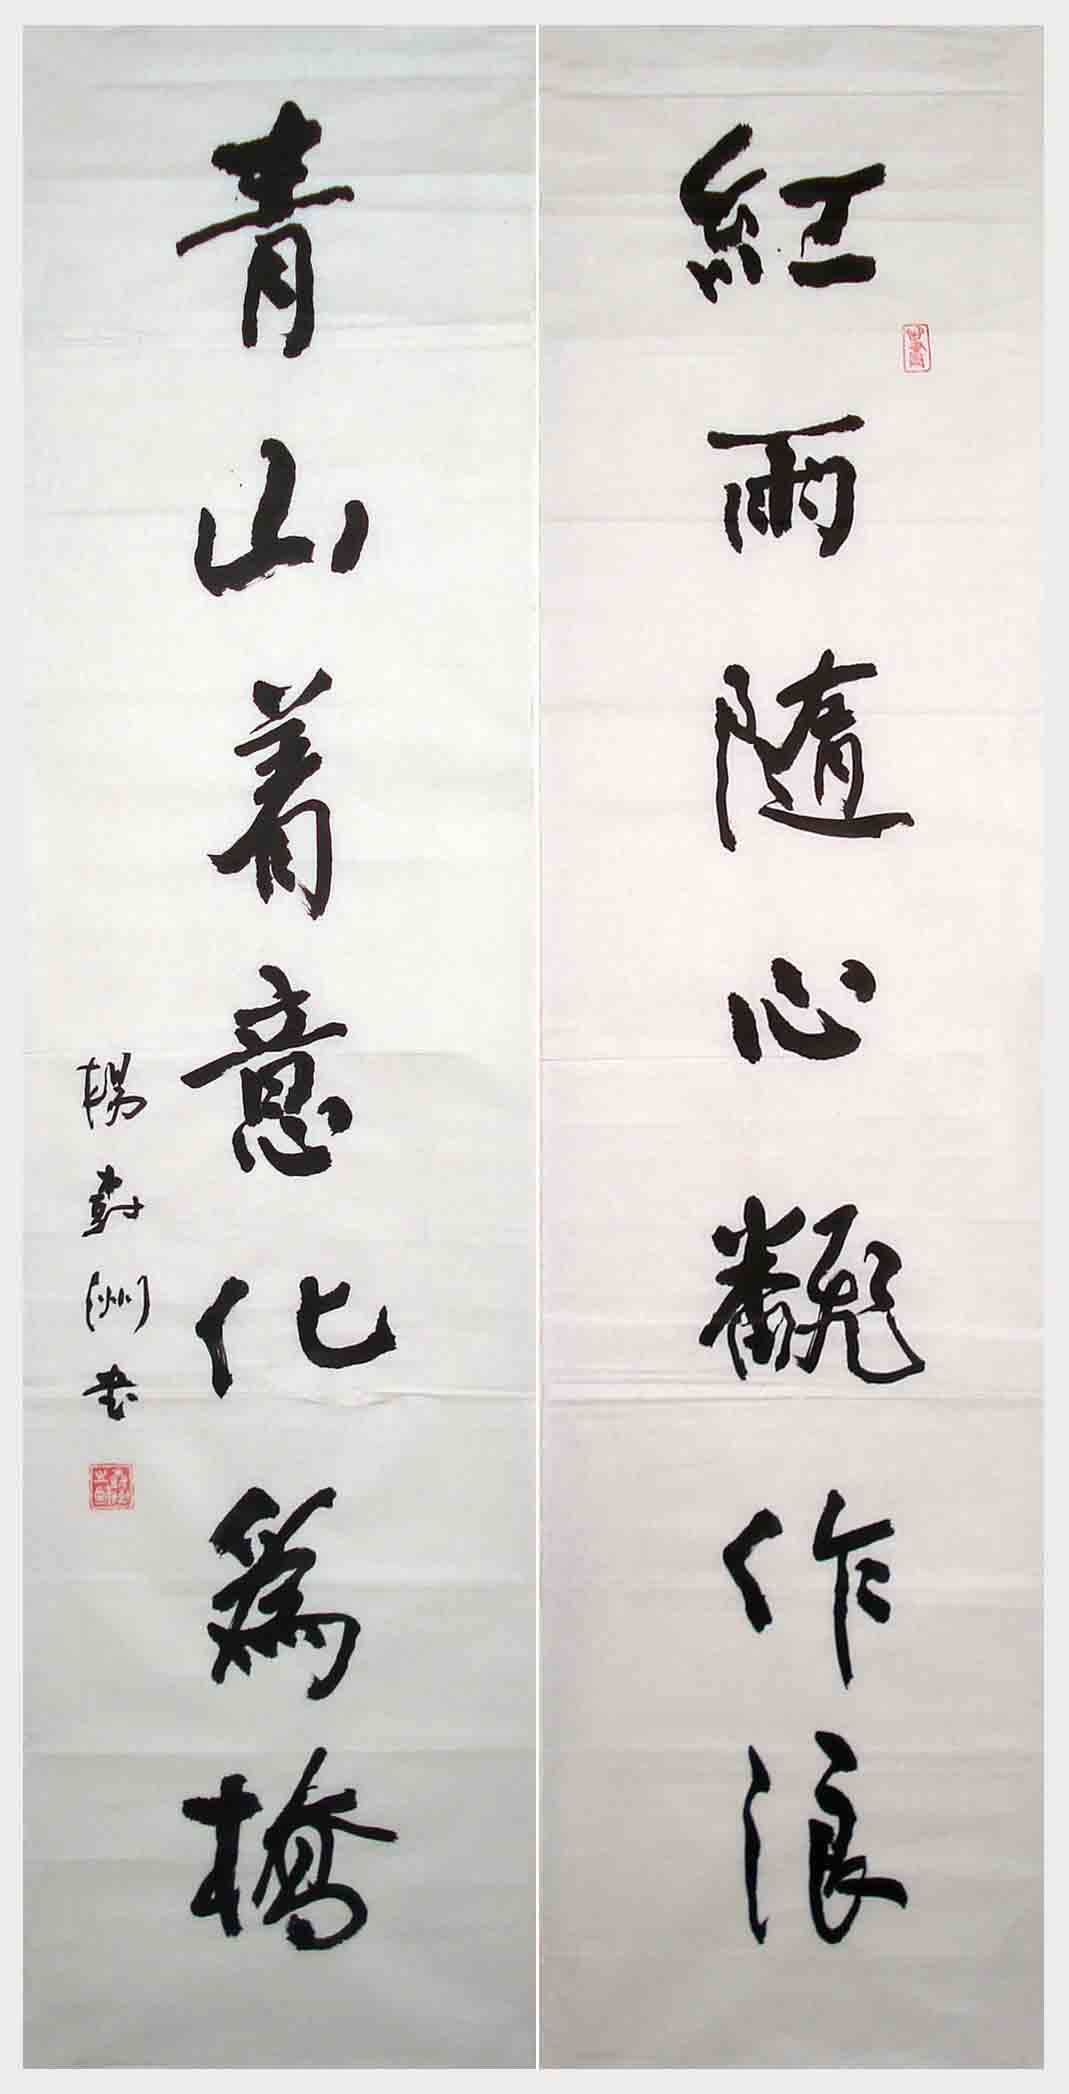 紅雨隨心翻作浪
青山着意化為橋
楊對洲书